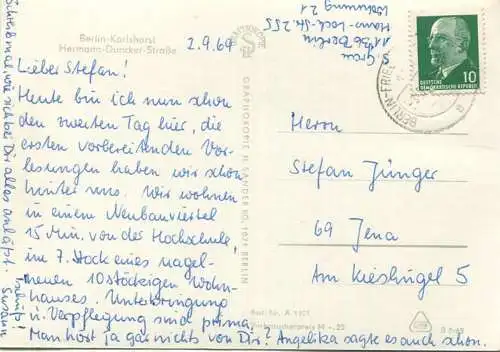 Berlin-Karlshorst
Hermann-Duncker-Straße
2.9.69
Lieber Stefan!
Heute bin ich nun schon
den zweiten Tag hier, die
ersten vorbereitenden Vor-
lesungen haben wir schon
hinter uns. Wir wohnen
in einem Neubauviertel
15 Min. von der Hochschule,
im 7. Stock eines nagel-
neuen 10stöckigen Wohn-
hauses. Unterbringung
u. Verpflegung sind prima.
Man hört ja gar nichts von Dir! Angelika sagte es auch schon.
Schreib mal, wie sich bei Dir alles anläßt.
Tschüß!
Susann
GRAPHOKOPIE H. SANDER KG, 1071 BERLIN
Best. Nr. A 1301
Verbraucherpreis M -,20
S. Grau
1136 Berlin
Hans-Loch-Str. 255
Wohnung 21
10
DEUTSCHE
DEMOKRATISCHE REPUBLIK
BERLIN-FRIE
Herrn
Stefan Jünger
69 Jena
Am Kieshügel 5